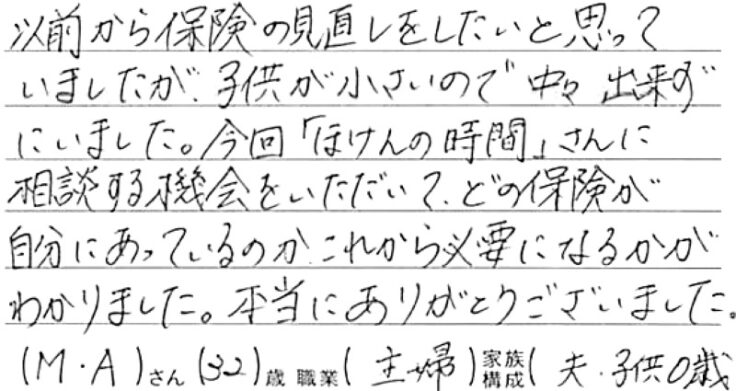 以前から保険の見直しをしたいと思って
いましたが、子供が小さいので中々出来ず
にいました。今回「ほけんの時間」さんに
相談する機会をいただいて、どの保険が
自分にあっているのか、これから必要になるかが
わかりました。本当にありがとうございました。
(M・A)さん(32)歳 職業(主婦)家族構成(夫・子供0歳